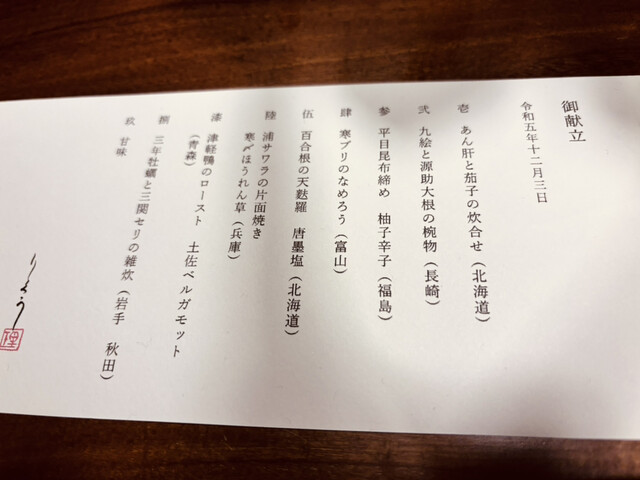 御献立
令和五年十二月三日
壱 あん肝と茄子の炊合せ(北海道)
弐 九絵と源助大根の椀物(長崎)
参 平目昆布締め 柚子辛子(福島)
肆 寒ブリのなめろう(富山)
伍 百合根の天麩羅 唐墨塩(北海道)
陸 浦サワラの片面焼き
寒〆ほうれん草(兵庫)
漆 津軽鴨のロースト 土佐ベルガモット
(青森)
捌 三年牡蠣と三関セリの雑炊(岩手 秋田)
玖 甘味
りょう
理